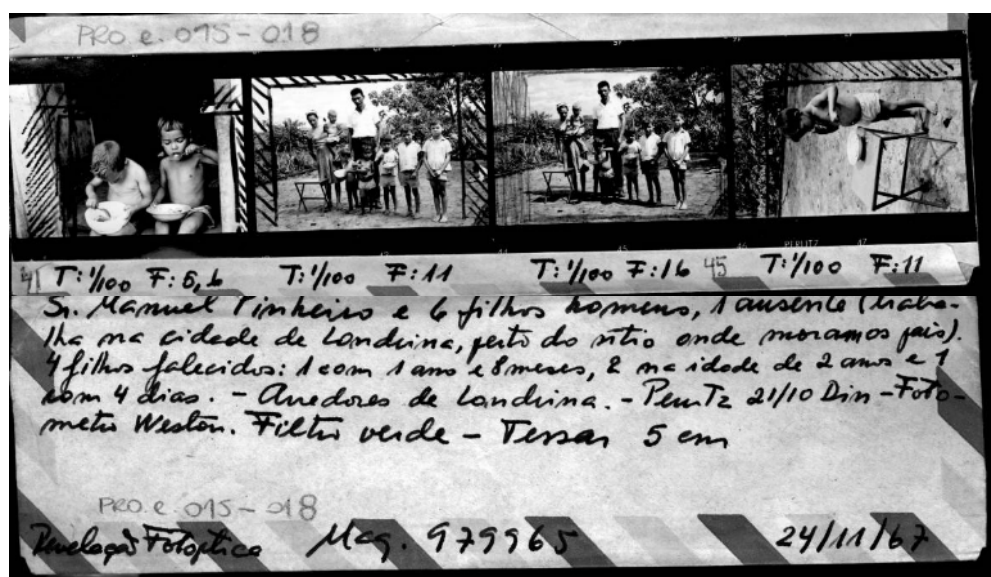 PRO.e.015-018
41 T:1/100 F:5,6 T:1/100 F:11 T:1/100 F:16 45 T:1/100 F:11
Sr. Manuel Pinheiro e 6 filhos homens, 1 ausente (traba-
lha na cidade de Londrina, perto do sítio onde moram os pais).
4 filhos falecidos: 1 com 1 ano e 8 meses, 2 na idade de 2 anos e 1
com 4 dias. - Arredores de Londrina. - Perutz 21/10 Din - Foto-
metro Weston. Filtro verde - Tessar 5 cm
PRO.e.015-018
Revelação Fotoptica Mag. 979965 24/11/67